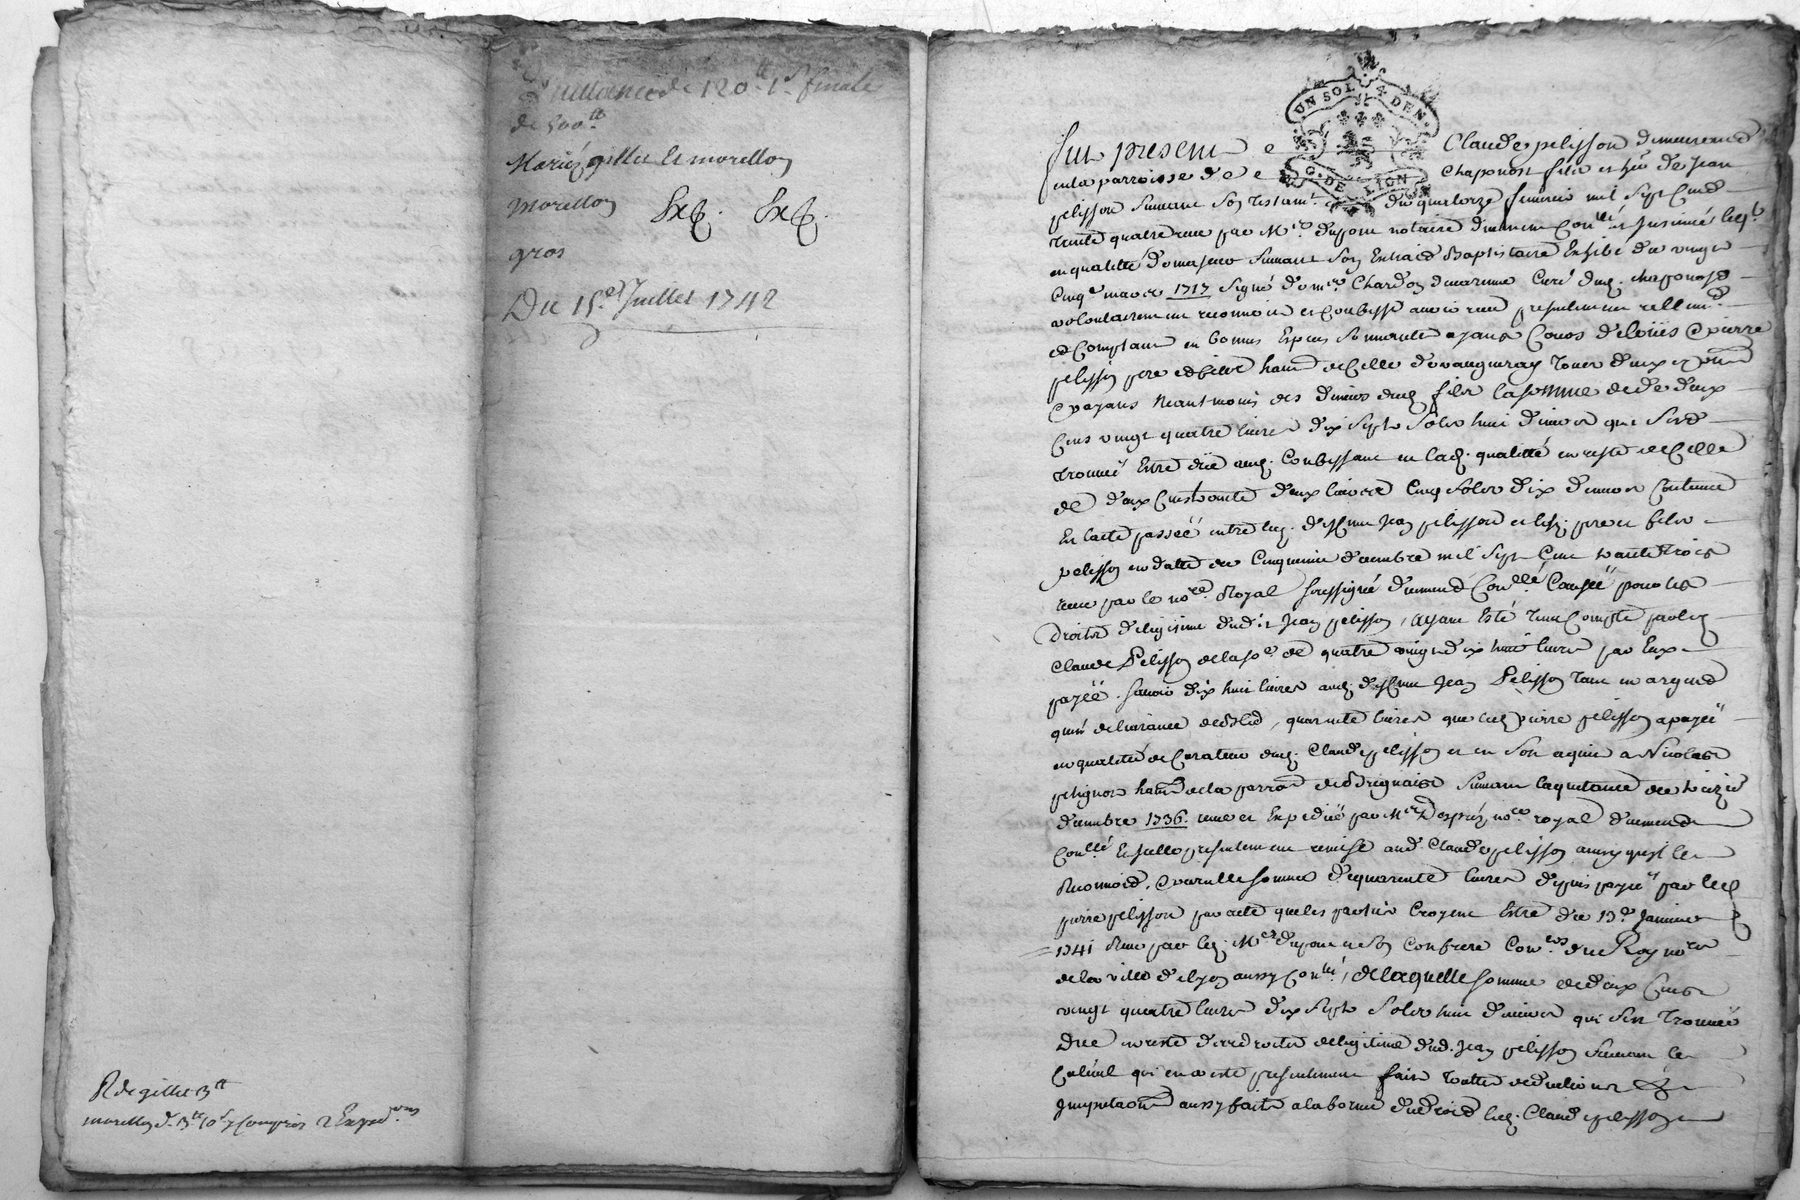 Quittance de 120 ^tt 1 ^s finale
de 500 ^tt
Mariés gillet et morellon
Morellon Exp. Exp.
gros
Du 15 ^e Juillet 1742
R de gillet 3 ^tt
morellon d. 3 ^tt 10 ^s y compris 2 Exped ^ons
UN SOL 4 DEN.
G. DE LION
Fut present Claude pelisson demeurend
en la parroisse de Chaponost fils et her de Jean
pelisson suivant son testam ^t du quatorze fevrier mil sept Cend
trente quatre receu par M ^re dupont notaire
en qualitté de majeur suivant son Extraid Baptistaire Exhibé du vingt
Cinq ^e mars 1717 signé de M ^re Chardon Curé dud. chaponost
volontairement reconnoit et Confesse avoir receu presentement reellem ^d
ed Comptant en bonnes Especes sonnantes ayant Cours de loüis & pierre
pelisson pere ed filz habt de Celle de vaugneray tous deux
& payant neantmoins des deniers dud filz la somme de deux
Cens vingt quatre livres dix sept solz huit deniers que s'est
trouvée Estre düe aud. Confessant en lad. qualitté en reste de Celle
de deux Cens trente deux livres Cinq solz dix deniers Contenue
En l'acte passée entre led. deffunt Jean pelisson et lesd. pere et filz
pelisson en datte du Cinquieme decembre mil sept Cent trante trois
receu par le no ^re Royal soussigné Con ^llé Causée pour les
droits de legitime dudit Jean pelisson, ayant Esté tenu Compte par led
Claude Pelisson de la so ^e de quatre vingt dix huit livres par Eux
payée. savoir dix huit livres aud. deffunt Jean Pelisson tant en argend
qu'en delivrance de bled, quarante livres que led pierre pelisson a payée
en qualitté de Curateur dud. Claude pelisson et en son aquit a Nicolas
petignos habt de la parroisse de Brignais suivant la quittance du treizie
decembre 1736. receue et Expediée par M ^re no ^re royal
Con ^llé Et icelle presentement remise aud Claude pelisson ainsy qu'il le
Reconnoid. & pareille somme de quarente livres depuis payée par led
pierre pelisson par acte que les parties Croyent Estre du 13 ^e Janvier
1741 Receu par led. M ^re dupont et son Confrere Con ^ers du Roy no ^res
de la ville de lyon aussy Con ^llé, de laquelle somme de deux Cens
vingt quatre livres dix sept solz huit deniers qui s'est trouvée
Due en reste des droits de legitime dud. Jean pelisson suivant le
Calcul qui en a esté presentement fait toutte deductions &
Imputaon aussy faite a la forme du droid led. Claude pelisson